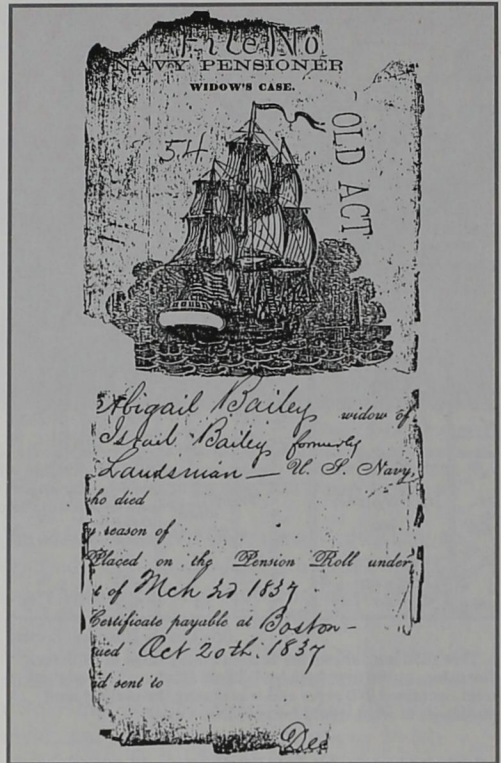 File No
NAVY PENSIONER
WIDOW'S CASE.
54
OLD ACT
Abigail Bailey widow of
Israil Bailey formerly
Landsman — U. S. Navy
ho died
y reason of
Placed on the Pension Roll under
t of Mch 3d 1837
Certificate payable at Boston –
ued Oct 20th. 1837
d sent to
Dec